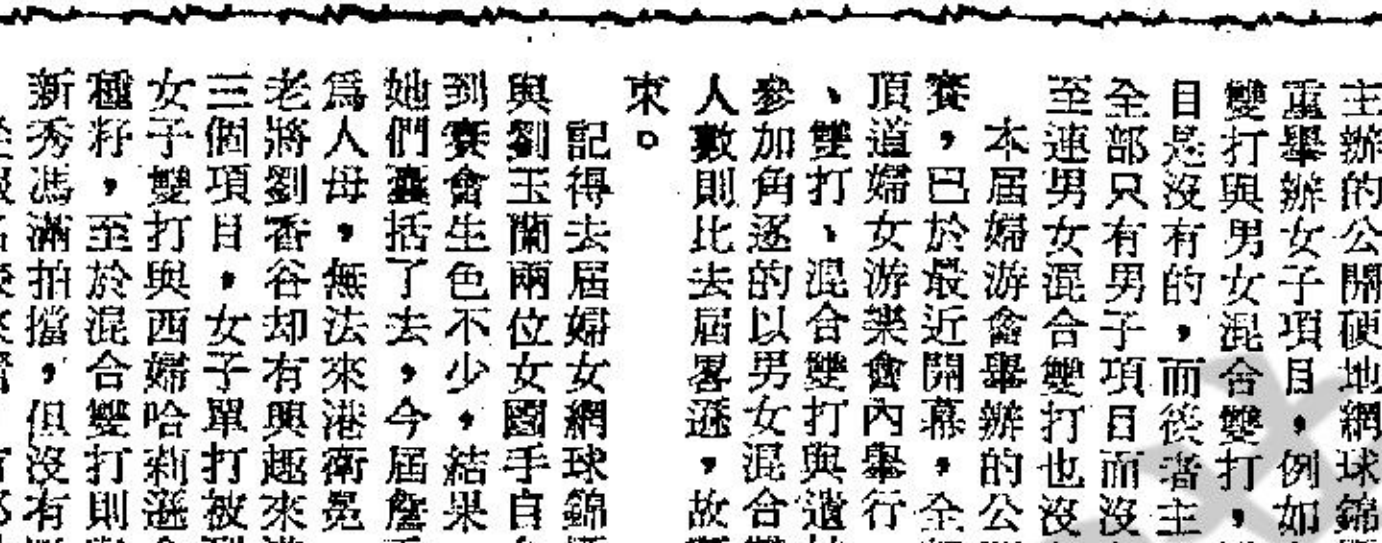 主辦的公開硬地網球錦
重舉辦女子項目,例如
雙打與男女混合雙打,
目是沒有的,而後者主
全部只有男子項目而沒
至連男女混合雙打也沒
本屆婦游會舉辦的公
賽,已於最近開幕,全
頂道婦女游樂會內舉行
、雙打、混合雙打與遺
參加角逐的以男女混合
人數則比去屆畧遜,故
束。
記得去屆婦女網球錦
與劉玉蘭兩位女國手自
到賽會生色不少,結果
她們囊括了去,今屆詹
為人母,無法來港衛冕
老將劉香谷却有興趣來
三個項目,女子單打被
女子雙打與西婦哈莉遜
種籽,至於混合雙打則
新秀馮滿拍擋,但沒有